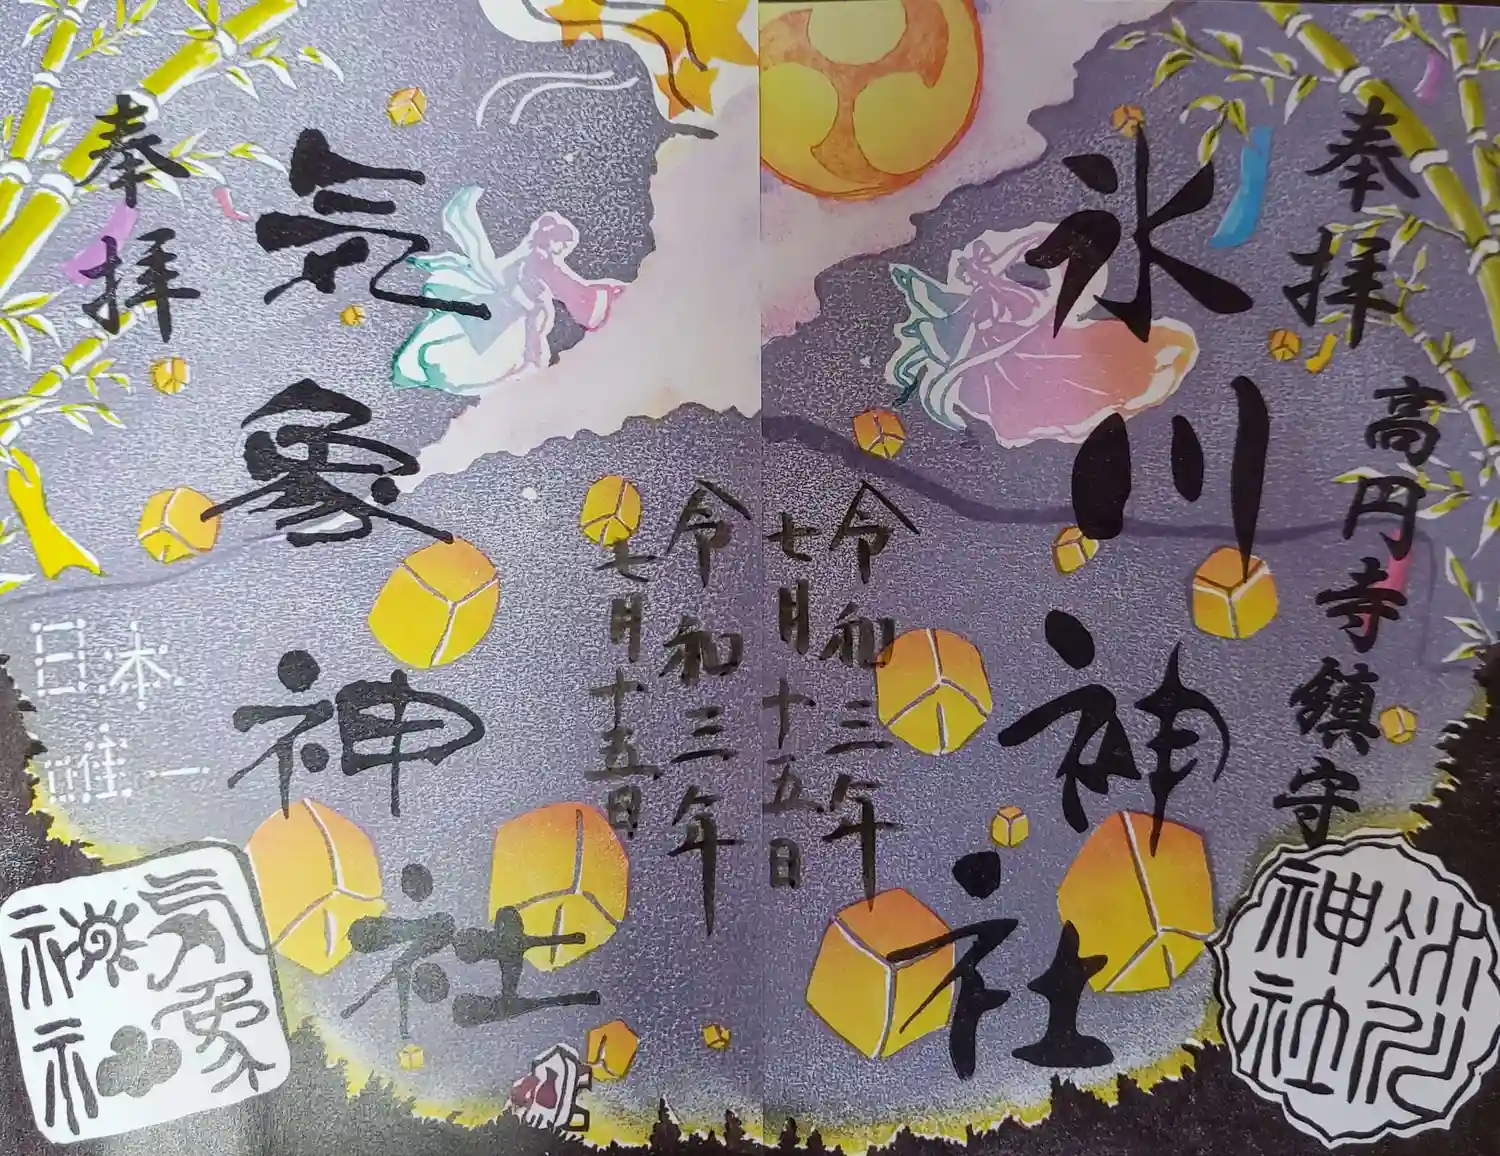 奉拝
高円寺鎮守
氷川神社
令和三年
七月十五日
氷川
神社
令和三年
七月十五日
気象神社
奉拝
日本
唯一
気象
神社